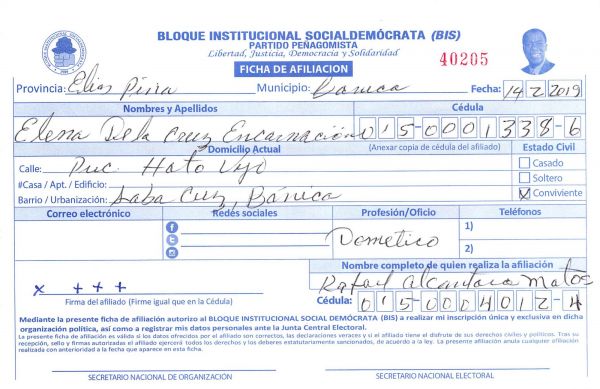 BLOQUE INSTITUCIONAL SOCIALDEMÓCRATA (BIS)
PARTIDO PEÑAGOMISTA
Libertad, Justicia, Democracia y Solidaridad
40205
FICHA DE AFILIACION
Provincia: Elias Piña Municipio: Banica Fecha: 14/2/2019
Nombres y Apellidos Cédula
Elena De la Cruz Encarnación 015-0001338-6
Domicilio Actual (Anexar copia de cédula del afiliado) Estado Civil
Calle: Puc. Hato Vijo Casado
#Casa / Apt. / Edificio: Soltero
Barrio / Urbanización: Saba Cruz, Bánica Conviviente
Correo electrónico Redes sociales Profesión/Oficio Teléfonos
1)
Dometico
2)
Nombre completo de quien realiza la afiliación
x +++ Rafael Alcantara Matos
Firma del afiliado (Firme igual que en la Cédula) Cédula: 015-0004012-4
Mediante la presente ficha de afiliación autorizo al BLOQUE INSTITUCIONAL SOCIAL DEMÓCRATA (BIS) a realizar mi inscripción única y exclusiva en dicha
organización política, así como a registrar mis datos personales ante la Junta Central Electoral.
La presente ficha de afiliación es válida si los datos ofrecidos por el afiliado son correctos, las declaraciones veraces y si el afiliado tiene el disfrute de sus derechos civiles y políticos. Tras su
recepción, sello y firmas autorizadas el afiliado ejercerá todos los derechos y los deberes estatutariamente sancionados, de acuerdo a la ley. La presente afiliación anula cualquier afiliación
realizada con anterioridad a la fecha que aparece en esta ficha.
SECRETARIO NACIONAL DE ORGANIZACIÓN SECRETARIO NACIONAL ELECTORAL